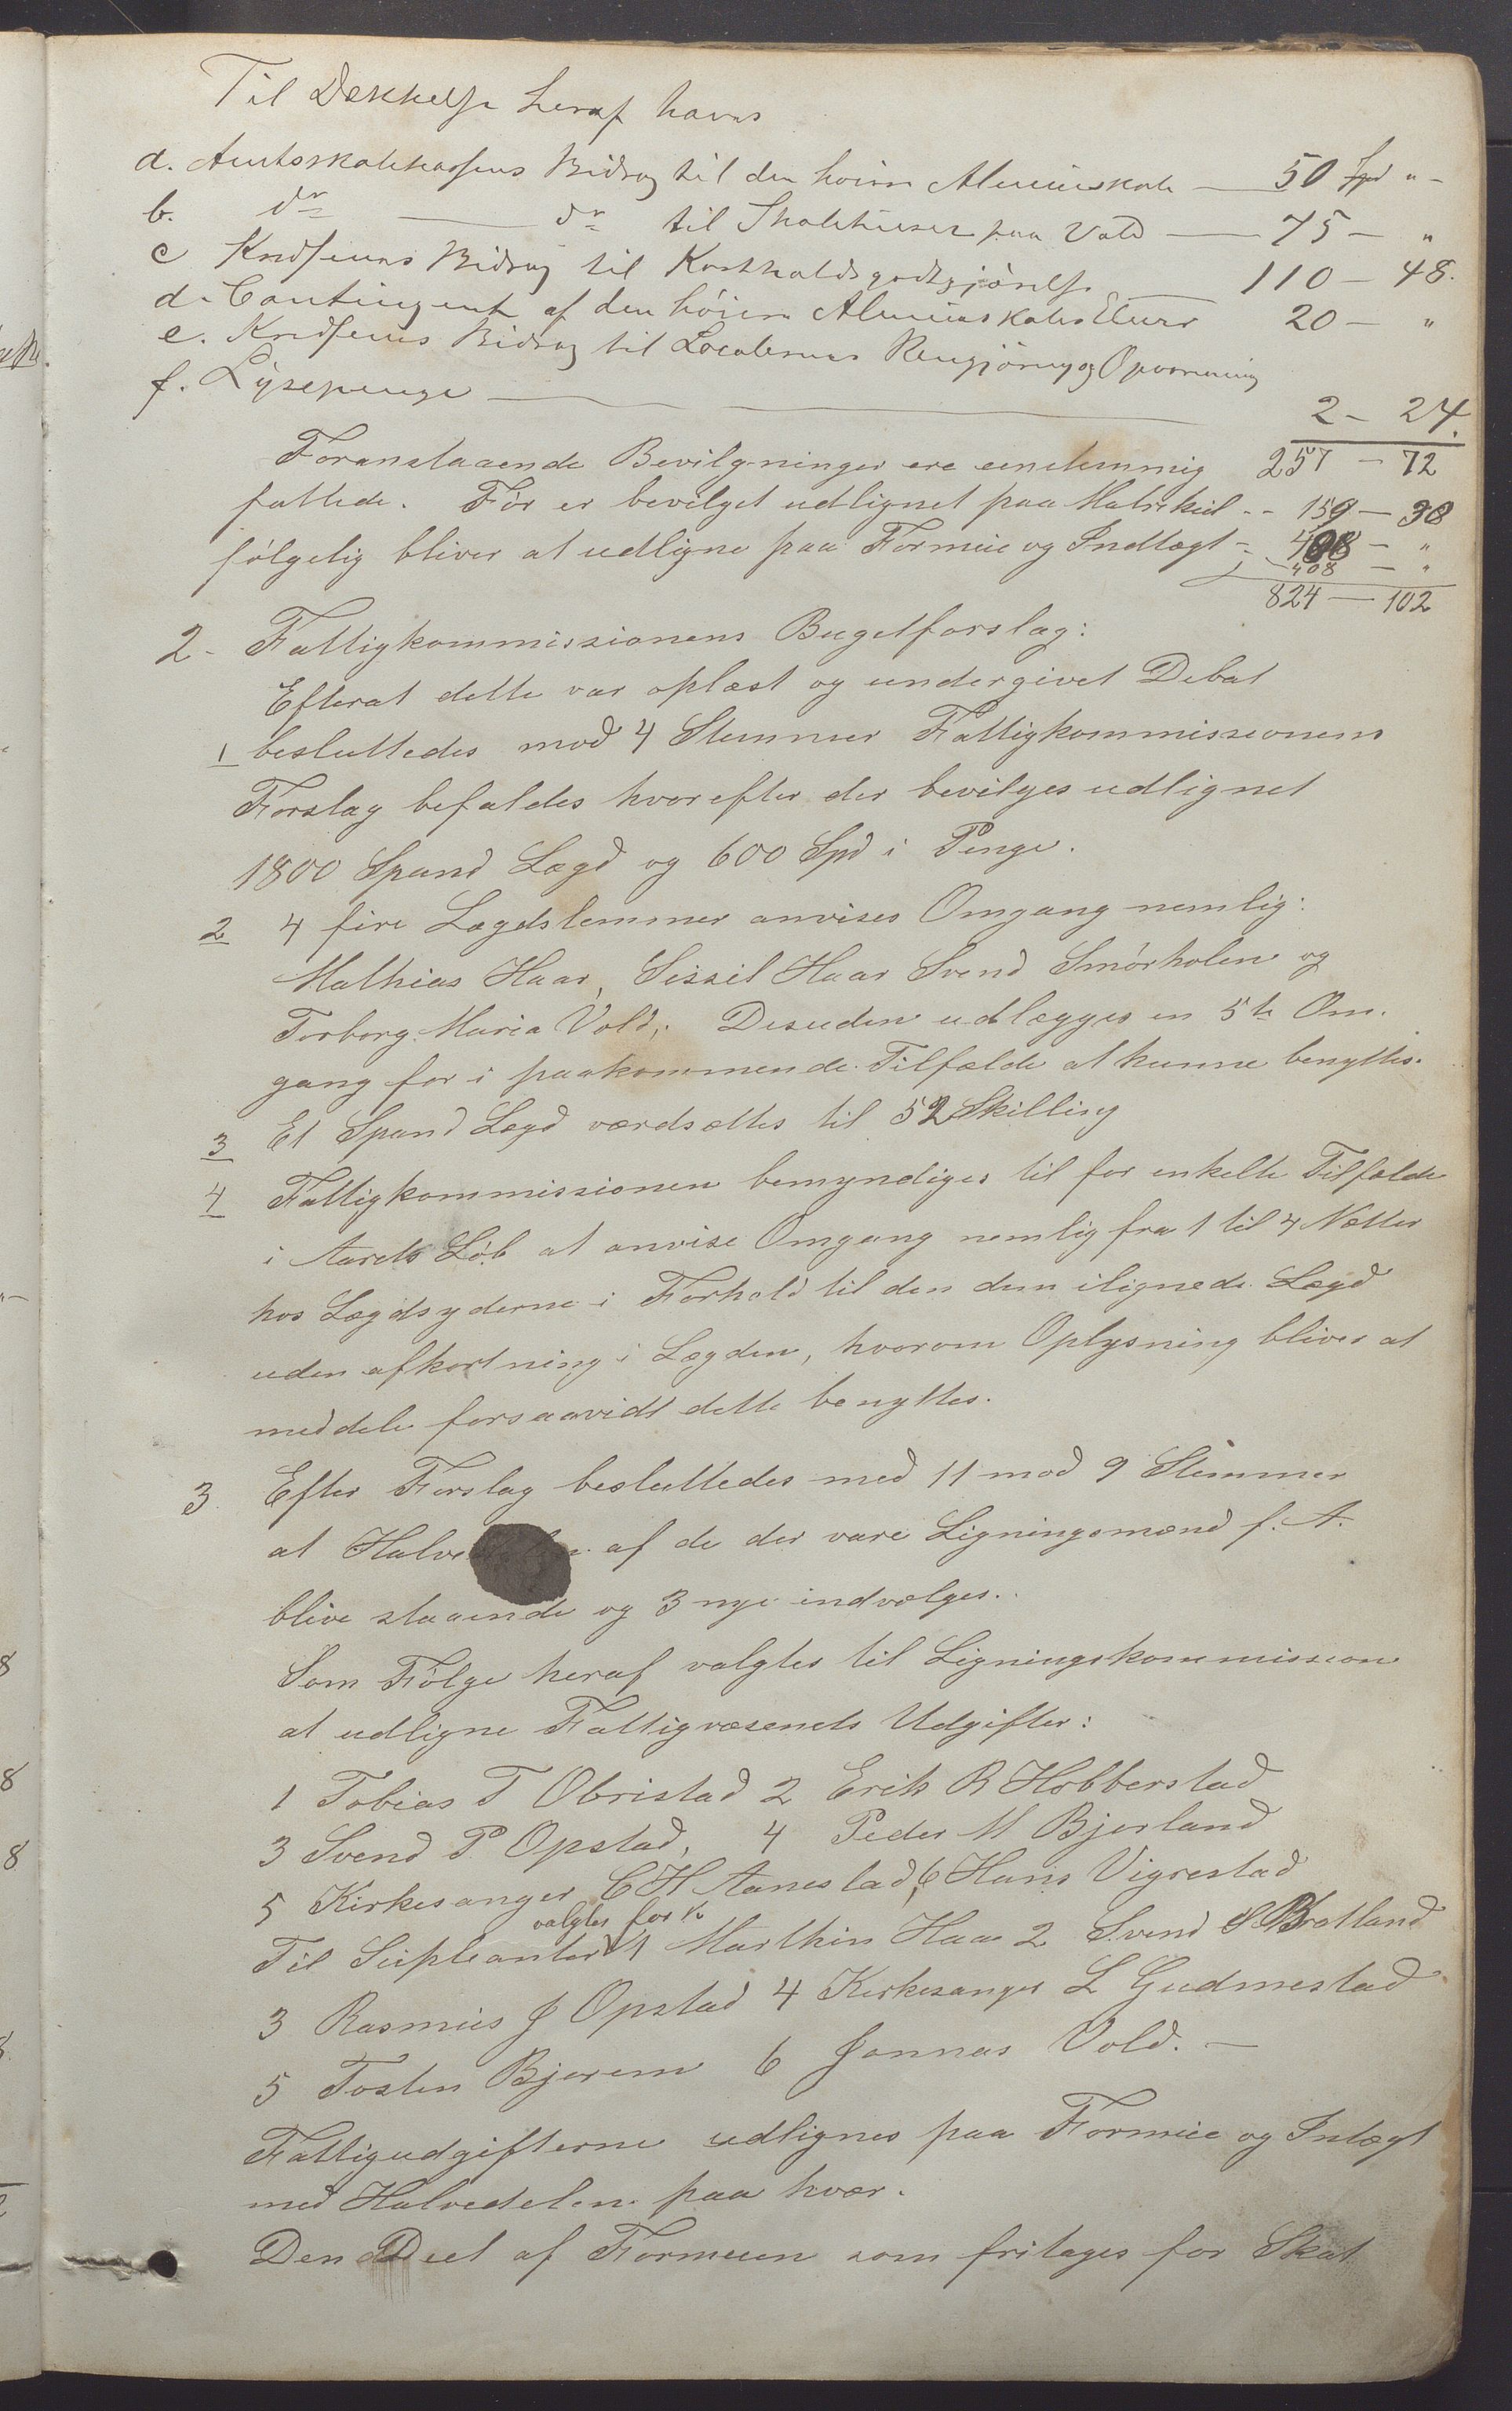 Til Dækkelse heraf haves
a. Amtsskolekassens Bidrag til den høiere Almueskole — 50 Spd " -
b. do — do til Skolehuset paa Vold — 75 — "
c Kredsenes Bidrag til Kostholdsgodtgjørelse — 110 — 48.
d. Contingent af den høiere Almueskoles Elever 20 — "
e. Kredsenes Bidrag til Localernes Rengjøring og Opvarmning
f. Lysepenge — 2 - 24.
Foranstaaende Bevilgninger ere eenstemmig 257 — 72
fattede. Før er bevilget udlignet paa Matrikul - - 159 — 30
følgelig bliver at udligne paa Formue og Indtægt - 408 — "
408 — "
824 — 102
2 - Fattigkommissionens Bugetforslag:
Efterat dette var oplæst og undergivet Debat
1 besluttedes mod 4 Stemmer Fattigkommissionens
Forslag befaldes hvorefter der bevilges udlignet
1800 Spand Lægd og 600 Spd i Penge.
2 4 fire Lægdslemmer anvises Omgang nemlig:
Mathias Haar, Sissil Haar Svend Smørholen og
Torborg Maria Vold,. Desuden udlægges en 5te Om-
gang for i paakommende Tilfælde at kunne benyttes.
3 Et Spand Lægd værdsættes til 52 Skilling
4 Fattigkommissionen bemyndiges til for enkelte Tilfælde
i Aarets Løb at anvise Omgang nemlig fra 1 til 4 Nætter
hos Lægdsyderne i Forhold til den dem ilignede Lægd
uden afkortning i Lægden, hvorom Oplysning bliver at
meddele forsaavidt dette benyttes.
3. Efter Forslag besluttedes med 11 mod 9 Stemmer
at af de der vare Ligningsmænd f. A.
blive staaende og 3 nye indvælges..
Som Følge heraf valgtes til Ligningskommission
at udligne Fattigvæsenets Udgifter:
1 Tobias T Obristad 2 Erik R Hobberstad
3 Svend P. Opstad, 4 Peder M Bjorland
5 Kirkesanger C H Aanestad, 6 Hans Vigrestad
valgtes for
Til Supleanter 1 Marthin Haar 2 Svend S. Bratland
3 Rasmus J Opstad 4 Kirkesanger L Gudmestad
5 Tosten Bjorem 6 Jonnas Vold. —
Fattigudgifterne udlignes paa Formue og Intægt
med Halvedelen paa hver.
Den Deel af Formuen som fritages for Skat